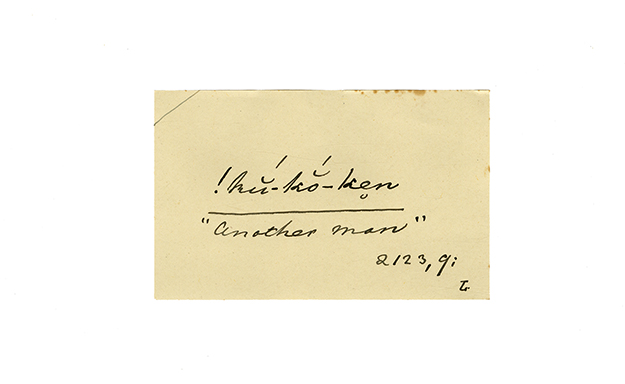 !kŭ́-kŏ́-ken̥
"another man"
2123, 9;